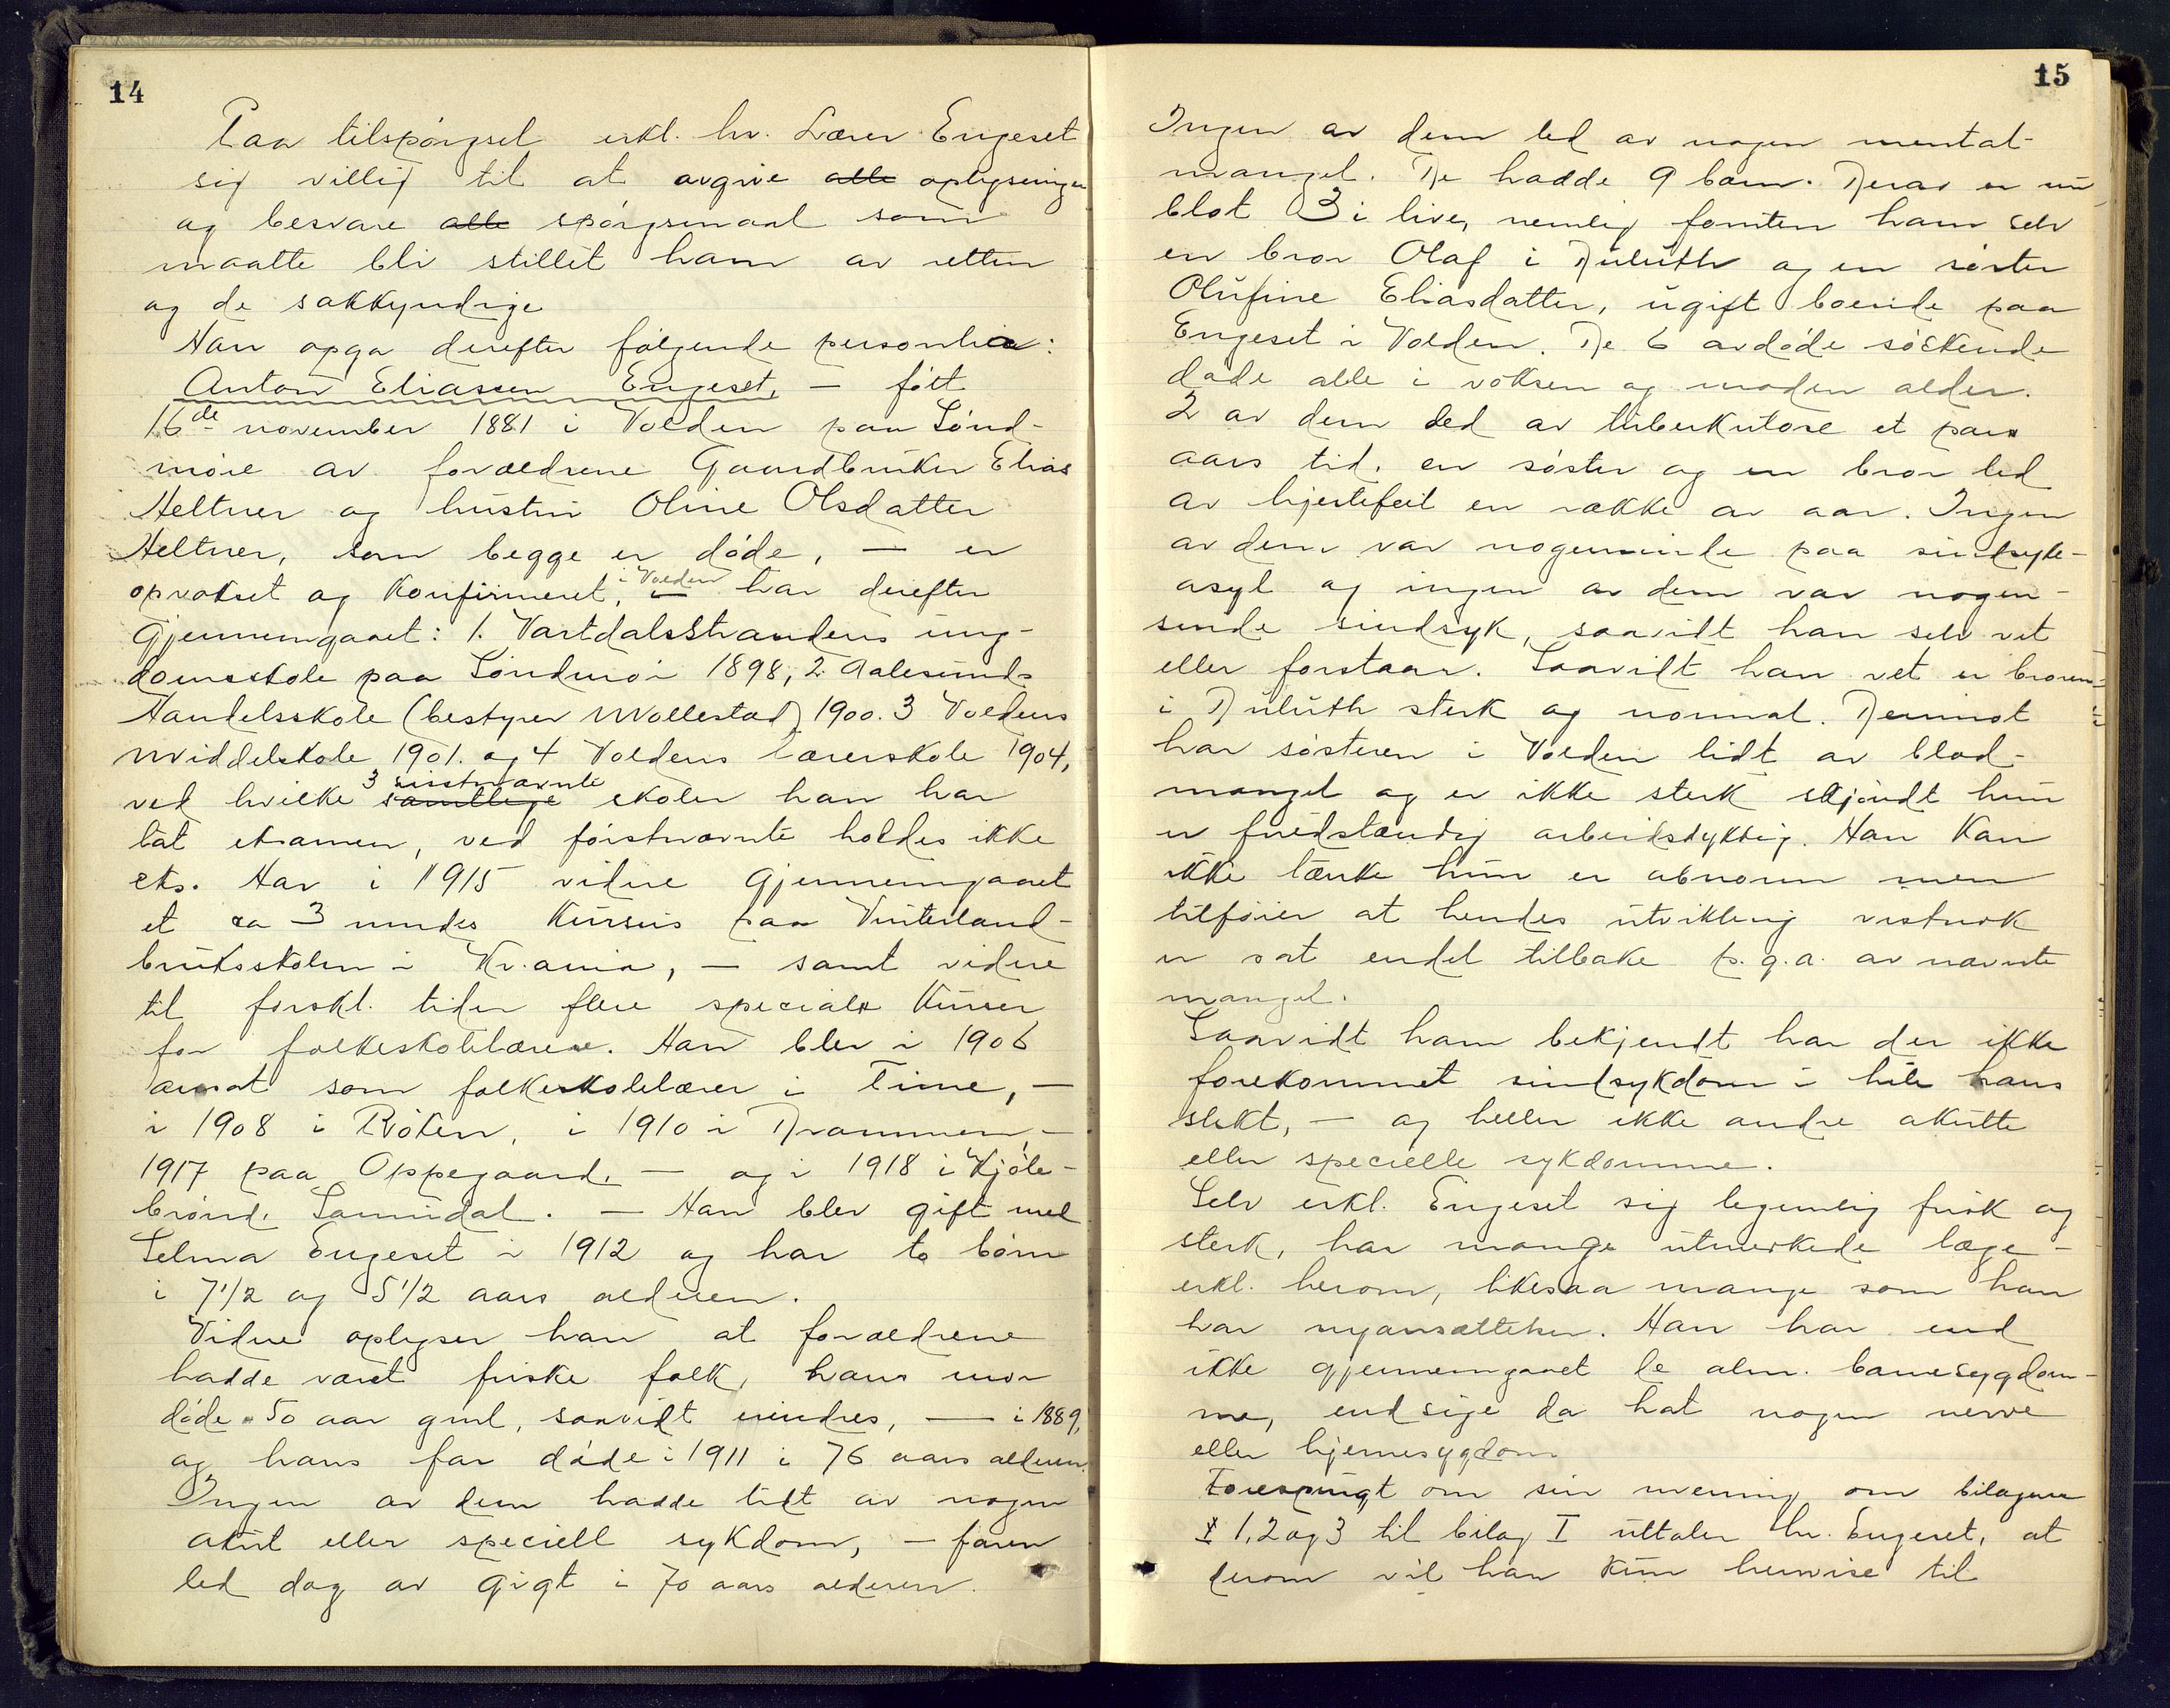 14
Paa tilspørgsel erkl. hr. Lærer Engeset
sig villig til at avgive alle oplysninger
og besvare alle spørgsmaal som
maatte bli stillet ham av retten
og de sakkyndige
Han opga derefter følgende personlia:
Anton Eliassen Engeset, — født
16de november 1881 i Volden paa Sønd-
møre av forældrene Gaardbruker Elias
Heltner og hustru Oline Olsdatter
Heltner, som begge er døde, — er
opvokset og konfirmeret, i Volden har derefter
gjennemgaaet: 1. Vartdalsstrandens ung-
domsskole paa Søndmør 1898, 2. Aalesunds
Handelsskole (bestyrer Møllestad) 1900. 3 Voldens
Middelskole 1901. og 4 Voldens lærerskole 1904,
3 sistnævnte
ved hvilke samtlige skoler han har
tat eksamen, ved førstnævnte holdes ikke
eks. Har i 1915 videre gjennemgaaet
et ca 3 mndes kursus paa Vinterland-
bruksskolen i Kr.ania, — samt videre
til forskl. tider flere special kurser
for folkeskolelærere. Han blev i 1906
ansat som folkeskolelærer i Time, —
i 1908 i Røken, i 1910 i Drammen, —
1917 paa Oppegaard, — og i 1918 i Kjøle-
brønd, Sannidal. — Han blev gift med
Selma Engeset i 1912 og har to børn
i 7 1/2 og 5 1/2 aars alderen.
Videre oplyser han at forældrene
hadde været friske folk, hans mor
døde 50 aar gml, saavidt erindres, — i 1889,
og hans far døde i 1911 i 76 aars alderen.
Ingen av dem hadde lidt av nogen
akut eller speciell sykdom, — faren
led dog av gigt i 70 aars alderen.
15
Ingen av dem led av nogen mental-
mangel. De hadde 9 barn. Derav er nu
blot 3 i live, nemlig foruten ham selv
en bror Olaf i Duluth og en søster
Olufine Eliasdatter, ugift boende paa
Engeset i Volden. De 6 avdøde søskende
døde alle i voksen og moden alder.
2 av dem led av tuberkulose et par
aars tid, en søster og en bror led
av hjertefeil en række av aar. Ingen
av dem var nogensinde paa sindsyke-
asyl og ingen av dem var nogen-
sinde sindsyk, saavidt han selv vet
eller forstaar. Saavidt han vet er broren
i Duluth sterk og normal. Derimot
har søsteren i Volden lidt av blod-
mangel og er ikke sterk skjøndt hun
er fuldstændig arbeidsdyktig. Han kan
ikke tænke hun er abnorm men
tilføier at hendes utvikling vistnok
er sat endel tilbake p.g.a. av nævnte
mangel.
Saavidt ham bekjendt har der ikke
forekommet sindsykdom i hele hans
slekt, — og heller ikke andre akutte
eller specielle sykdomme.
Selv erkl. Engeset sig legemlig frisk og
sterk, har mange utmerkede læge-
erkl. herom, likesaa mange som han
har nyansættelser. Han har end
ikke gjennemgaaet de alm. barnesygdom-
me, endsige da hat nogen nerve
eller hjernesygdom
Forespurgt om sin mening om bilagene
1, 2 og 3 til bilag I uttaler hr. Engeset, at
derom vil han kun henvise til